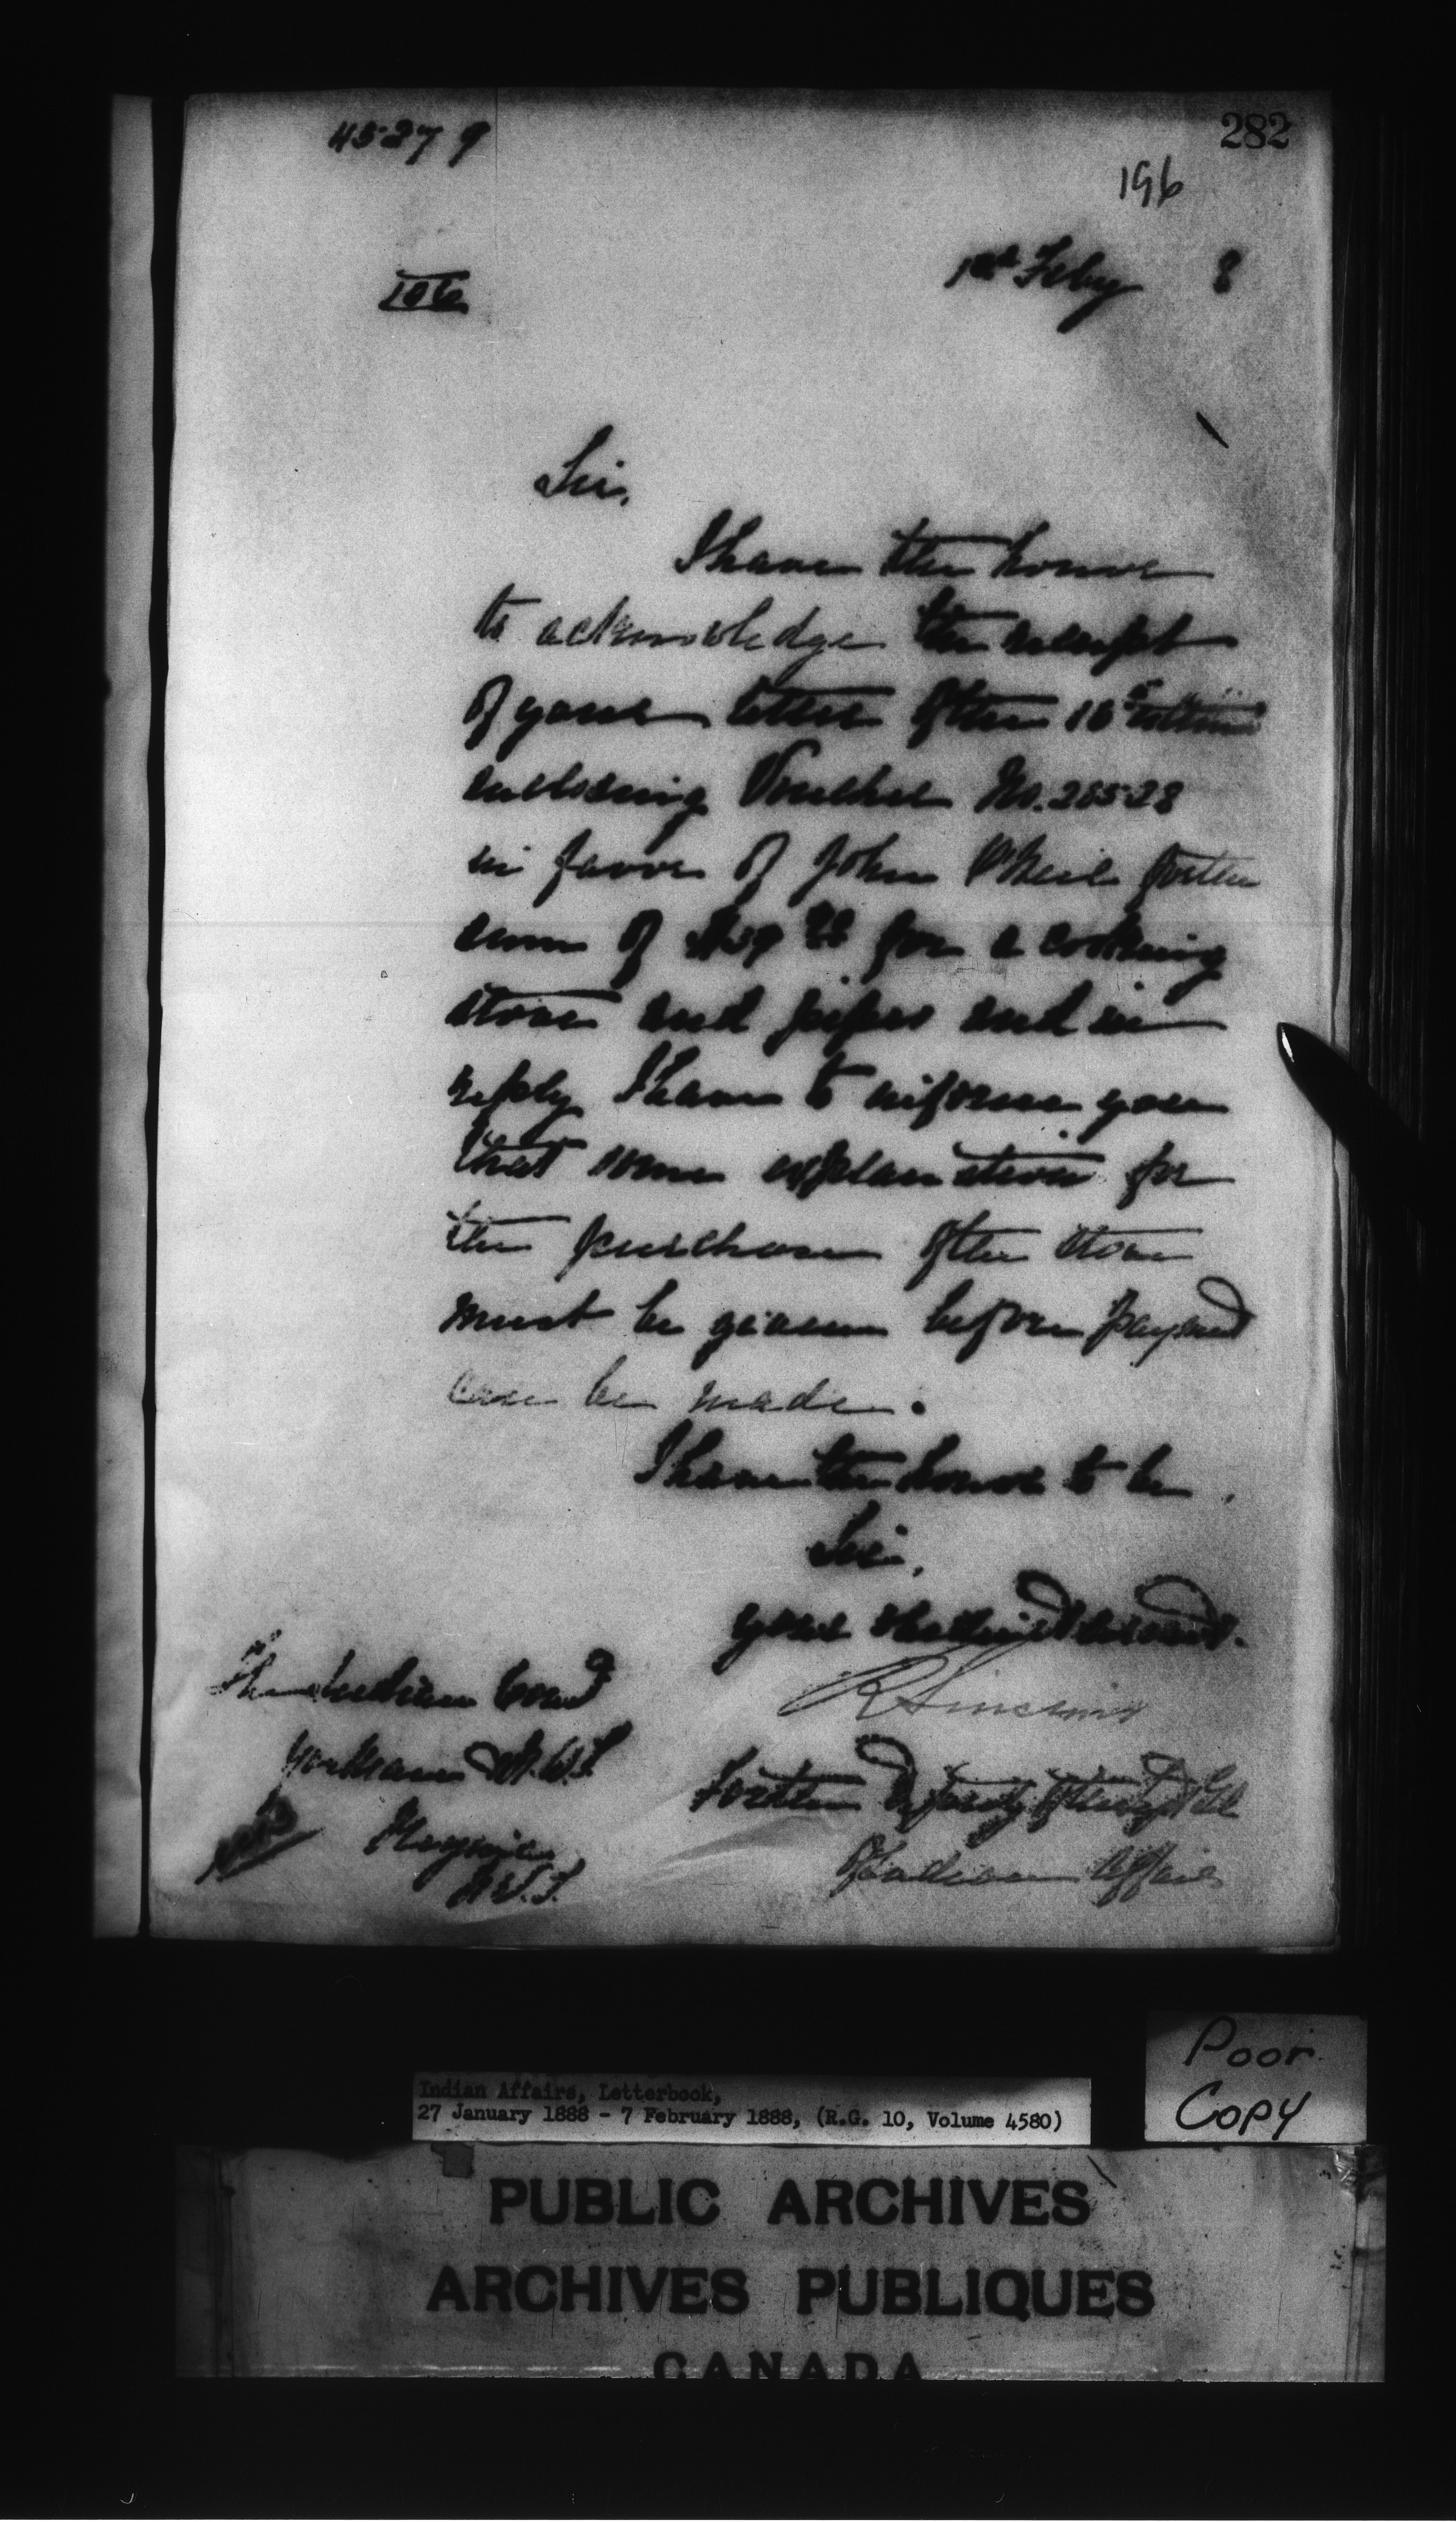 45279
282
196
1st Feby 8
106
Sir,
I have the honor
to acknowledge the receipt
of your letter of the 16th ultimo
enclosing Voucher No. 26528
in favor of John O'Neil for the
sum of for a cooking
stove and pipes and in
reply I have to inform you
that some explanation for
the purchase of the stove
must be given before payment
can be made.
I have the honor to be,
Sir,
Your obedient servant.
R Sinclair
For the Deputy of the Supt Genl
of Indian Affairs
The Indian Comr
N.W.T
Regina
N.W.T.
Poor
Copy
Indian Affairs, Letterbook,
27 January 1888 - 7 February 1888, (R.G. 10, Volume 4580)
PUBLIC ARCHIVES
ARCHIVES PUBLIQUES
CANADA